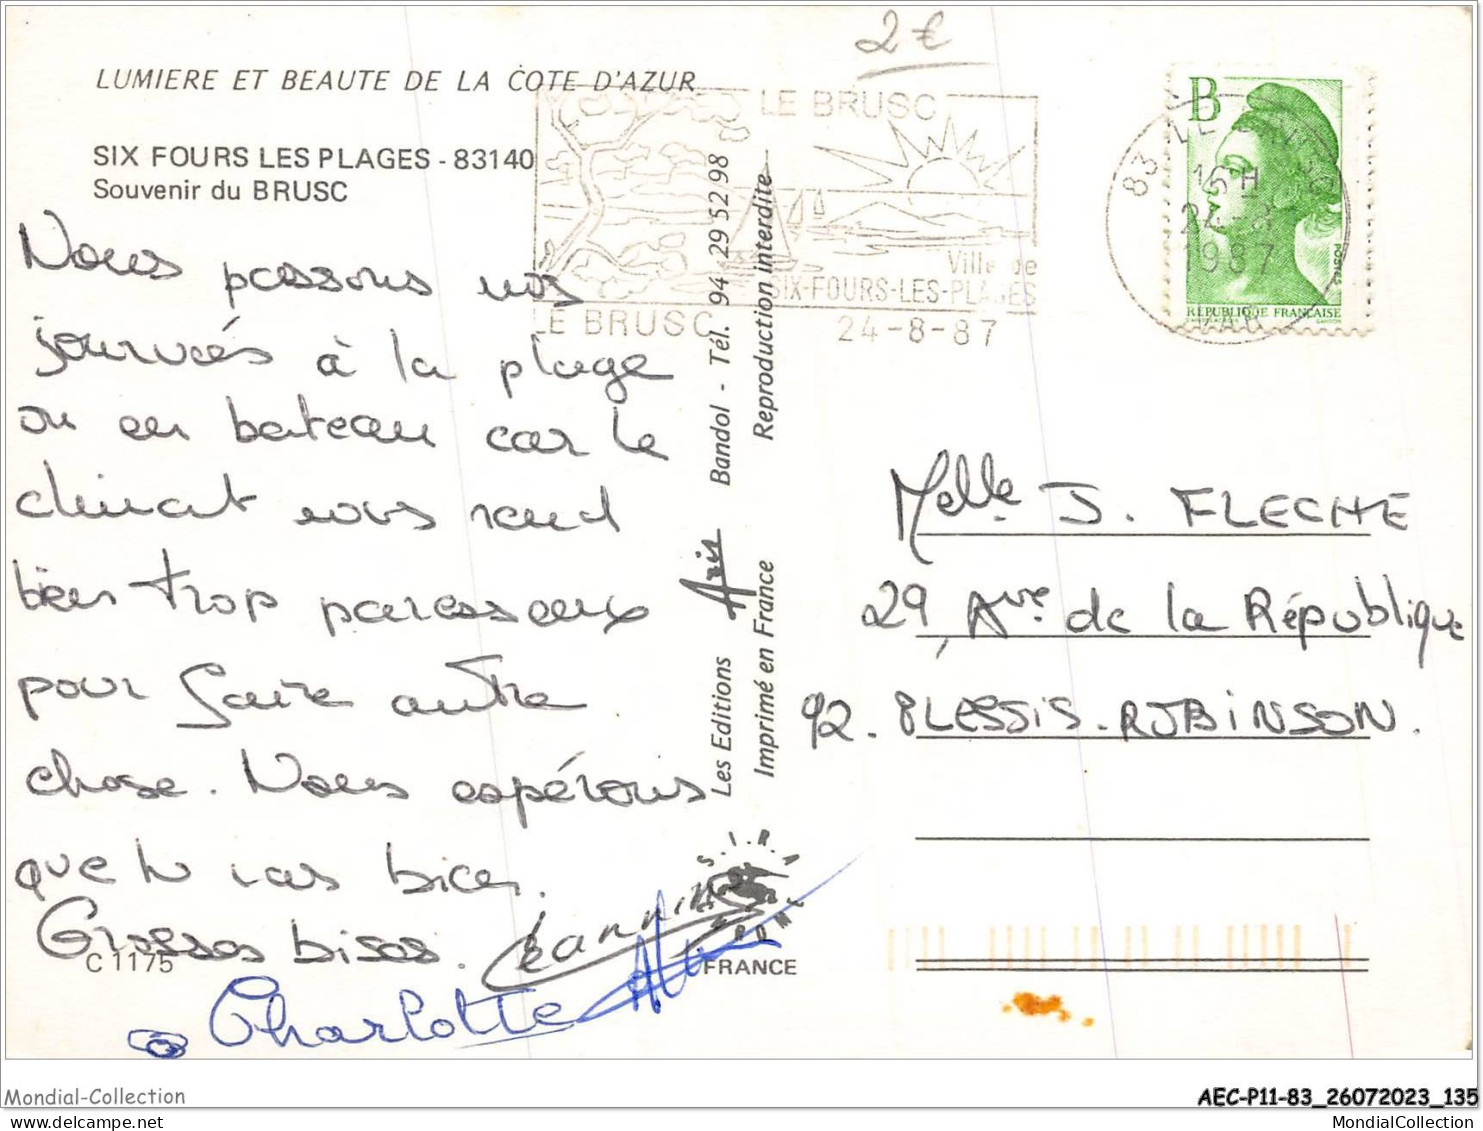 2€
LUMIERE ET BEAUTE DE LA COTE D'AZUR
SIX FOURS LES PLAGES - 83140
Souvenir du BRUSC
Nous passons nos
journées à la plage
ou en bateau car le
climat nous rend
bien trop paresseux
pour faire autre
chose. Nous espérons
que tu vas bien.
Grosses bises.
C 1175
Charlotte
LE BRUSC
Ville de
SIX-FOURS-LES-PLAGES
LE BRUSC
24-8-87
Les Editions Aris Bandol - Tél. 94 29 52 98
Imprimé en France Reproduction interdite
S.I.R.A
FRANCE
B
POSTES
REPUBLIQUE FRANÇAISE
83 LE BRUSC
15 H
24-8
1987
VAR
Melle J. FLECHE
29, Ave de la République
92. PLESSIS-ROBINSON.
Mondial-Collection
AEC-P11-83_26072023_135
MondialCollection